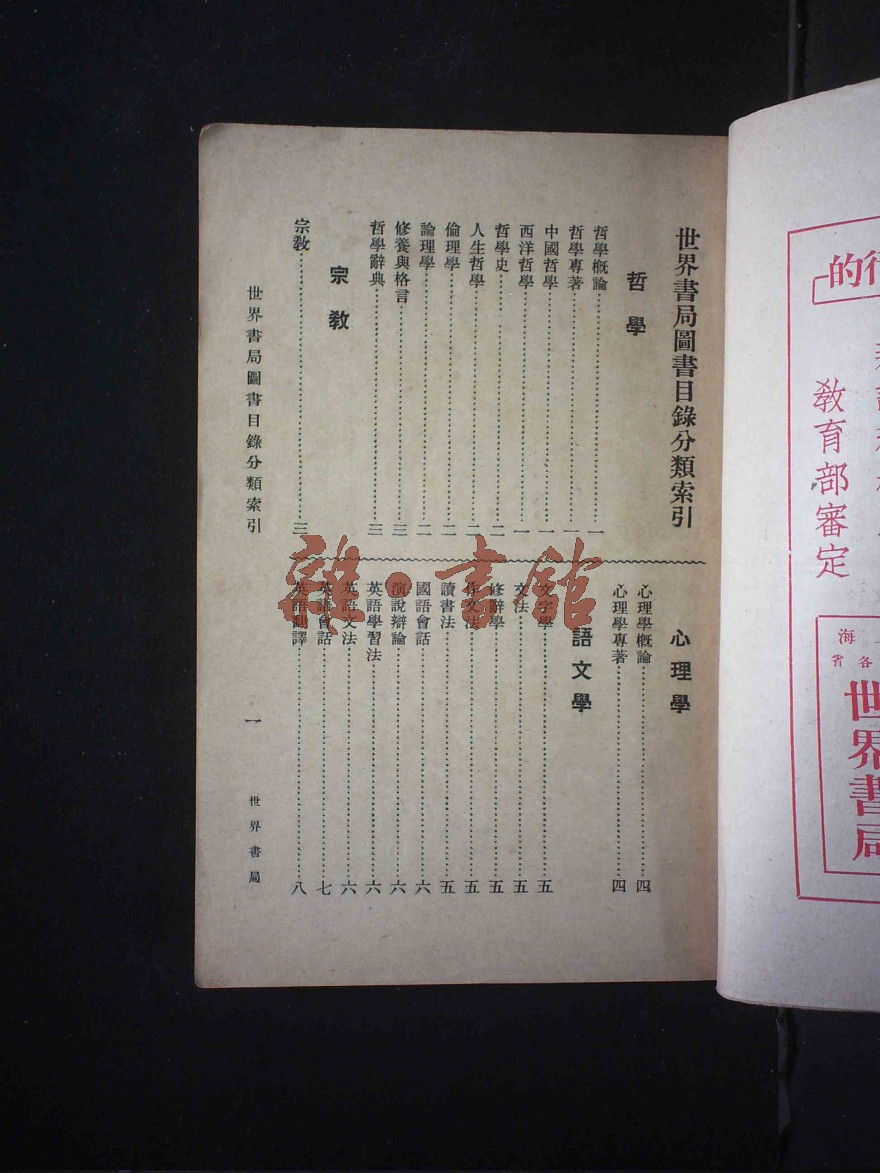 世界書局圖書目錄分類索引
哲學
哲學概論……一
哲學專著……一
中國哲學……一
西洋哲學……一
哲學史……二
人生哲學……二
倫理學……二
論理學……二
修養與格言……三
哲學辭典……三
宗教
宗教……三
心理學
心理學概論……四
心理學專著……四
語文學
文字學……五
文法……五
修辭學……五
作文法……五
讀書法……五
國語會話……六
演說辯論……六
英語學習法……六
英語文法……六
英語會話……七
英語翻譯……八
世界書局圖書目錄分類索引
一
世界書局
雜·書館
行的
教育部審定
海
各省
世界書局